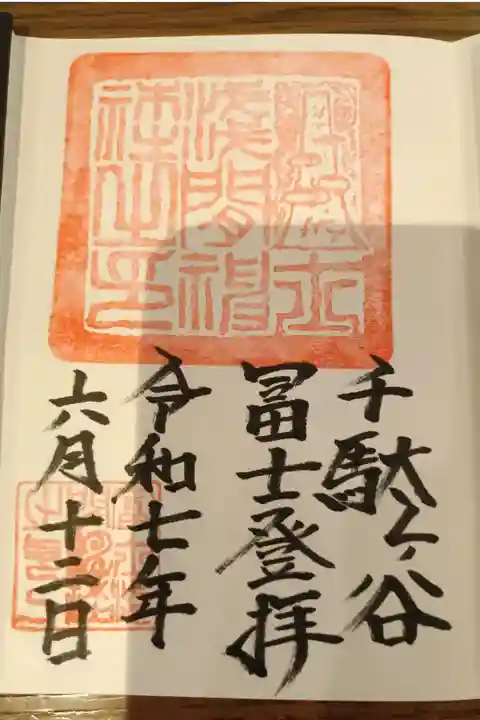 千駄ヶ谷
冨士登拝
令和七年
六月十二日
浅間神
社之印